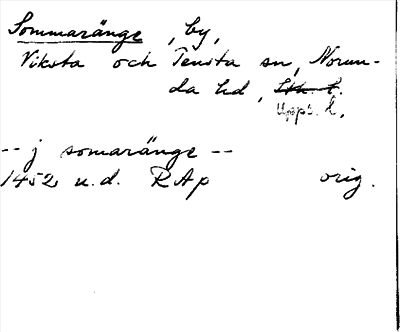 Sommaränge, by,
Viksta och Tensta sn, Norun-
da hd, Sth. l.
Upps. l.
-- j somaränge --
1452 u.d. RAp orig.